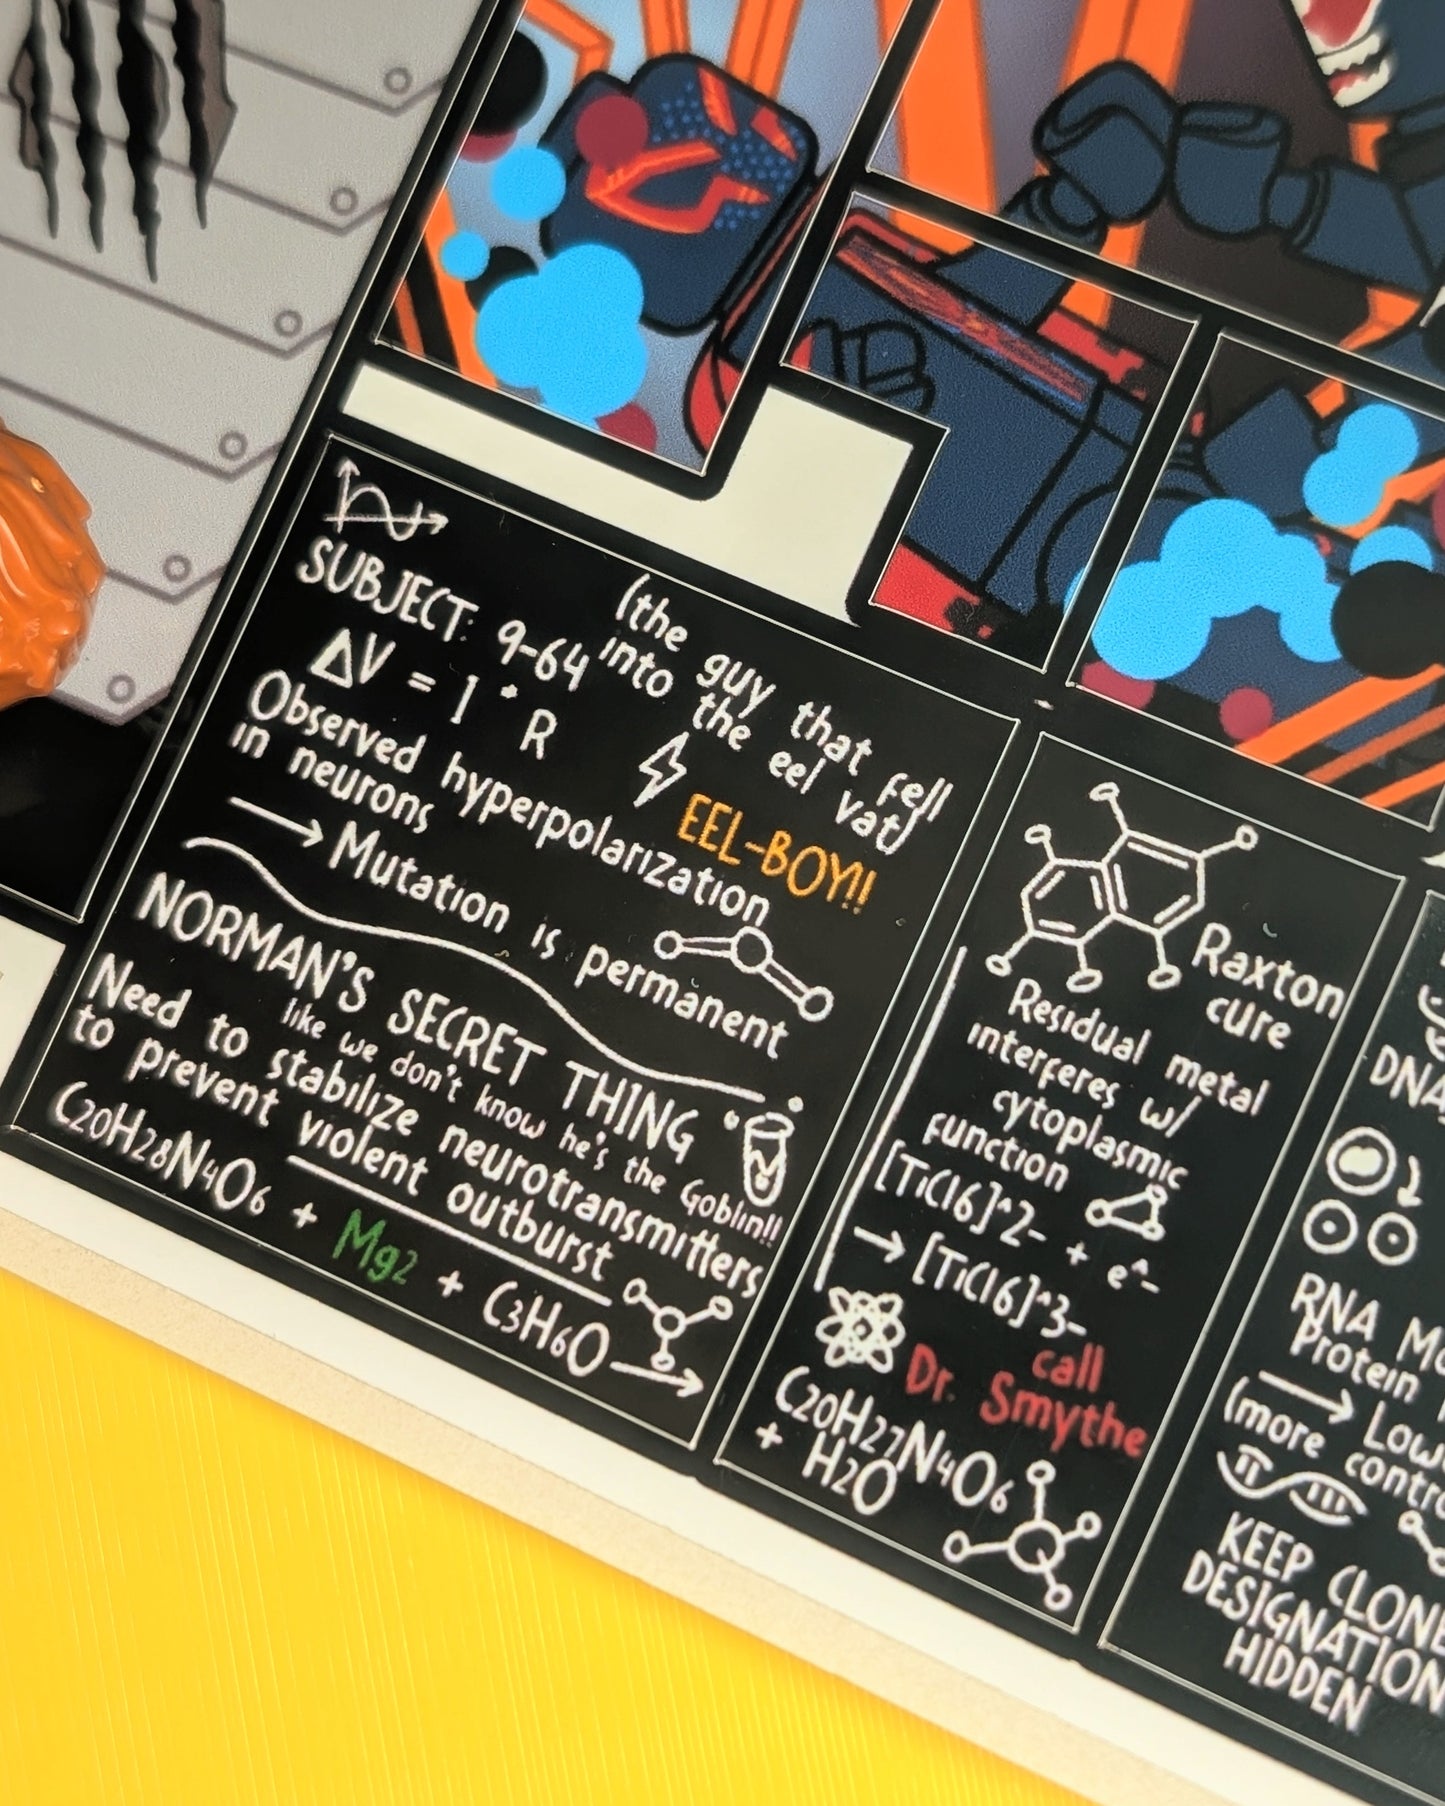 SUBJECT: 9-64
(the guy that fell
into the eel vat)
ΔV = I * R
EEL-BOY!!
Observed hyperpolarization
in neurons
→ Mutation is permanent
NORMAN'S SECRET THING
like we don't know he's the Goblin!!
Need to stabilize neurotransmitters
to prevent violent outburst
C20H28N4O6 + Mg2 + C3H6O →
Raxton
cure
Residual metal
interferes w/
cytoplasmic
function
[TiCl6]^2- + e^-
→ [TiCl6]^3-
call
Dr. Smythe
C20H27N4O6
+ H2O
DNA
RNA
Protein
→
(more
KEEP
DESIGNATION
HIDDEN